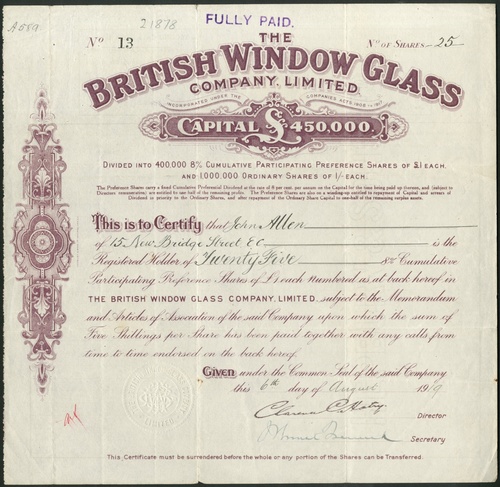 A589.
21878
FULLY PAID.
Nº 13
Nº OF SHARES 25
THE
BRITISH WINDOW GLASS
COMPANY, LIMITED.
INCORPORATED UNDER THE COMPANIES ACTS, 1908 TO 1917
CAPITAL £450,000.
DIVIDED INTO 400,000 8% CUMULATIVE PARTICIPATING PREFERENCE SHARES OF £1 EACH.
AND 1,000,000 ORDINARY SHARES OF 1/- EACH.
The Preference Shares carry a fixed Cumulative Preferential Dividend at the rate of 8 per cent. per annum on the Capital for the time being paid up thereon, and (subject to
Directors remuneration) are entitled to one-half of the remaining profits each year. The Preference Shares are also on a winding-up entitled to repayment of Capital and arrears of
Dividend in priority to the Ordinary Shares, and after repayment of the Ordinary Share Capital to one-half of the remaining surplus assets.
This is to Certify that John Allen
of 15 New Bridge Street EC is the
Registered Holder of Twenty Five 8% Cumulative
Participating Preference Shares of £1 each Numbered as at back hereof in
THE BRITISH WINDOW GLASS COMPANY, LIMITED, subject to the Memorandum
and Articles of Association of the said Company upon which the sum of
Five Shillings per Share has been paid together with any calls from
time to time endorsed on the back hereof.
Given under the Common Seal of the said Company
this 6th day of August 1919
Director
Secretary
This Certificate must be surrendered before the whole or any portion of the Shares can be Transferred.